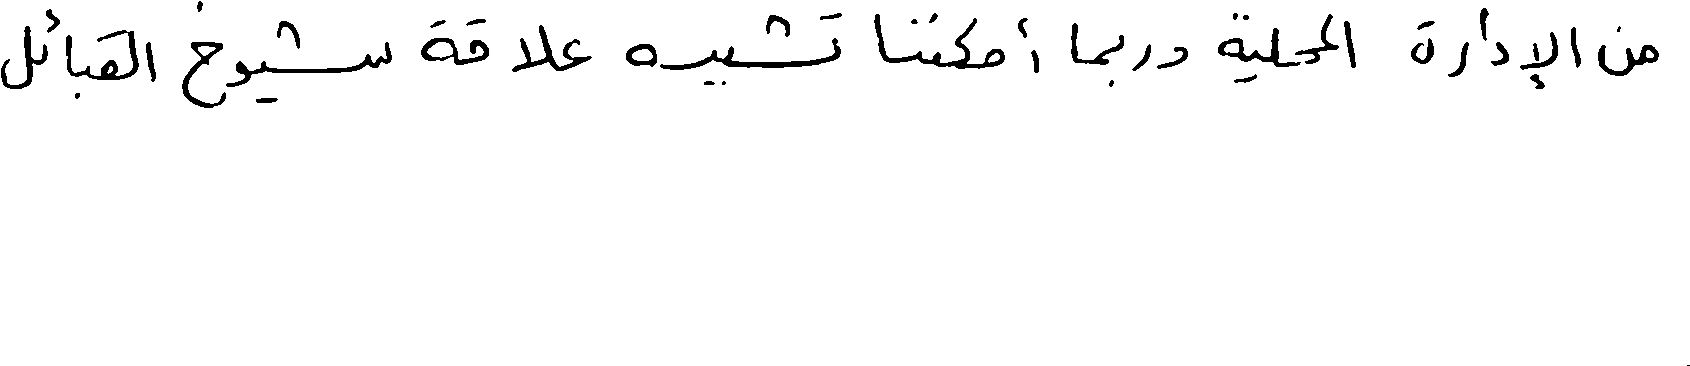 من الإدارة المحلية وربما أمكننا تشبيه علاقة شيوخ القبائل